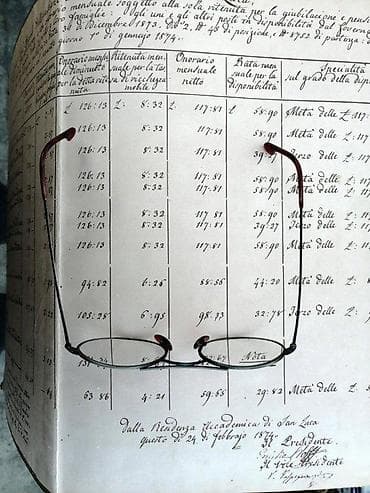 mensuale soggetto alla sola ritenuta per la giubilazione e pensi
famiglie: Ogli uni e gli altri posti in disponibilità dal Governo
31 Dicembre 1873
giorno 1º di gennajo 1874.
Onorario mensu Ritenuta men Onorario Rata men Specialità
ale diminuito suale per la tas mensuale suale per la sul grado della dispo
della ritenuta sa di ricchezza netto disponibilità
mobile
£ 126:13 £: 8:32 £ 117:81 £ 58:90 Metà delle £: 117:8
126:13 8:32 117:81 58:90 Metà delle £: 117
126:13 8:32 117:81 39:27 Terzo delle £: 117
126:13 8:32 117:81 58:90 Metà delle £: 117
126:13 8:32 117:81 58:90 Metà delle £: 117
126:13 8:32 117 81 58:90 Metà delle £: 117
126:13 8:32 117 81 39:27 Terzo delle £: 117
126:13 8:32 117:81 58:90 Metà delle £: 117
94:82 6:26 88:56 44:20 Metà delle £:
105:28 6:95 98:33 32:78 Terzo delle £:
8: :67 Nota
63 86 4:21 59:65 29:82 Metà delle £
dalla Residenza Accademica di San Luca
questo dì 24 di febbrajo 1874.
Il Presidente
Il Vice Presidente